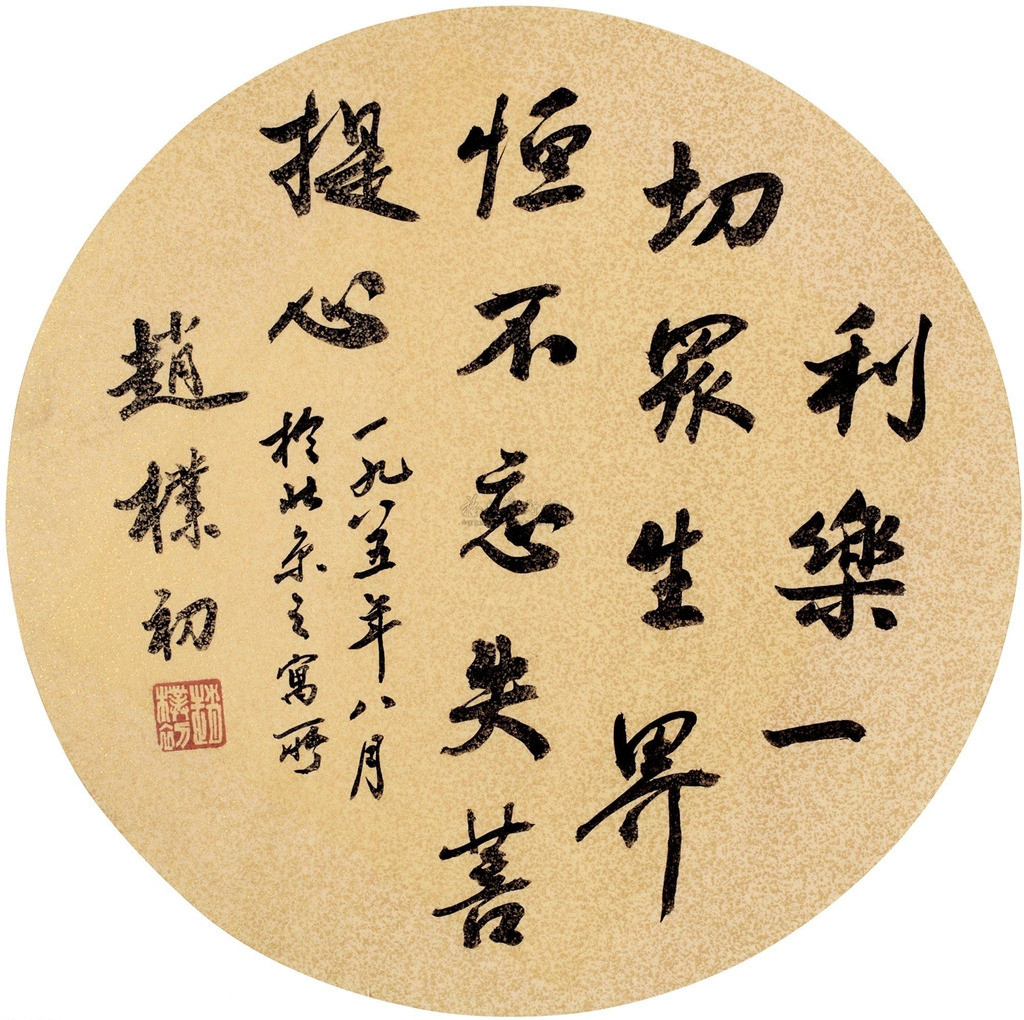 利樂一
切眾生界
恒不忘失菩
提心
一九八五年八月
於北京之寓所
趙樸初
趙樸初